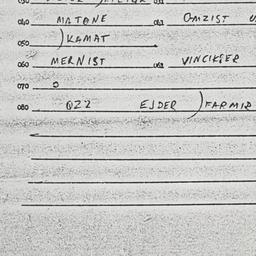 040 MATANE 041 OMZIST
)KAMAT
060 MERNIST 061 VINCIKSER
070 O
080 OZZ EJDER )FARMIR